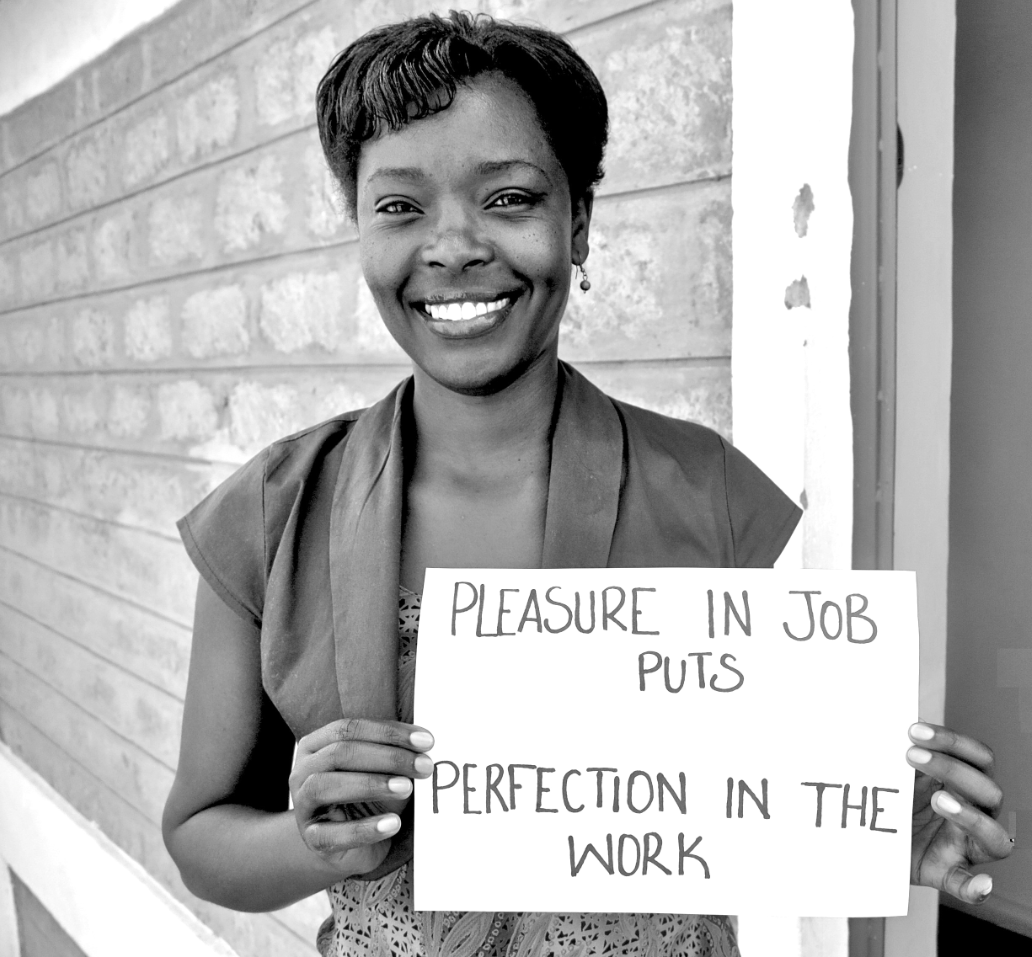 PLEASURE IN JOB
PUTS
PERFECTION IN THE
WORK